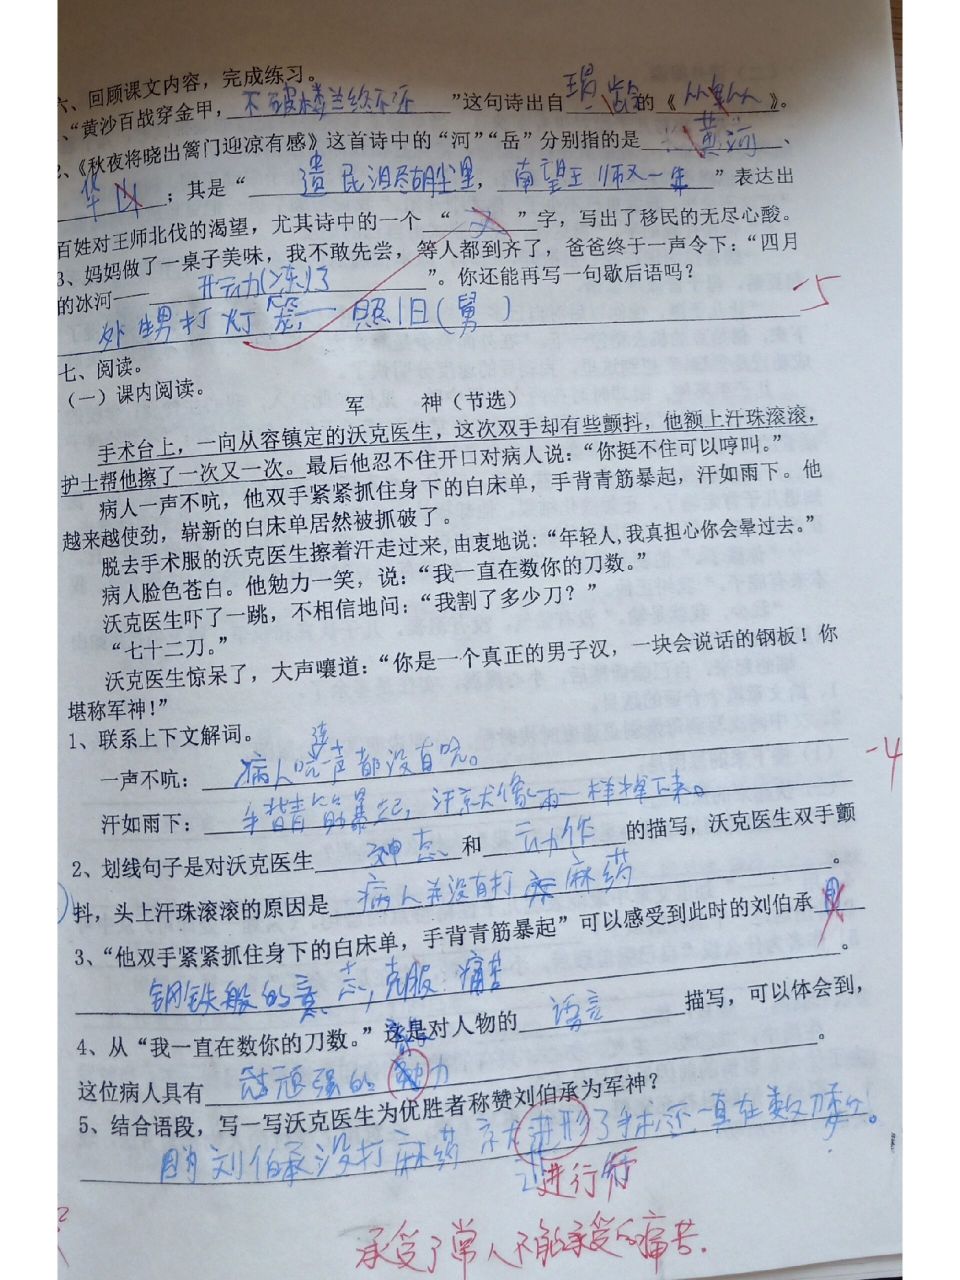 六、回顾课文内容，完成练习。
1、“黄沙百战穿金甲，不破楼兰终不还”这句诗出自 龄的《从 从》。
2、《秋夜将晓出篱门迎凉有感》这首诗中的“河”“岳”分别指的是 黄河、
华山；其是“遗民泪尽胡尘里，南望王师又一年”表达出
百姓对王师北伐的渴望，尤其诗中的一个“又”字，写出了移民的无尽心酸。
3、妈妈做了一桌子美味，我不敢先尝，等人都到齐了，爸爸终于一声令下：“四月
的冰河——开动(冻)了”。你还能再写一句歇后语吗？
外甥打灯笼一照旧(舅)
-5
七、阅读。
（一）课内阅读。
军 神（节选）
手术台上，一向从容镇定的沃克医生，这次双手却有些颤抖，他额上汗珠滚滚，
护士帮他擦了一次又一次。最后他忍不住开口对病人说：“你挺不住可以哼叫。”
病人一声不吭，他双手紧紧抓住身下的白床单，手背青筋暴起，汗如雨下。他
越来越使劲，崭新的白床单居然被抓破了。
脱去手术服的沃克医生擦着汗走过来，由衷地说：“年轻人，我真担心你会晕过去。”
病人脸色苍白。他勉力一笑，说：“我一直在数你的刀数。”
沃克医生吓了一跳，不相信地问：“我割了多少刀？”
“七十二刀。”
沃克医生惊呆了，大声嚷道：“你是一个真正的男子汉，一块会说话的钢板！你
堪称军神！”
1、联系上下文解词。
连
一声不吭：病人吭声都没有吭。
-4
汗如雨下：手背青筋暴起，汗水像雨一样掉下来。
2、划线句子是对沃克医生神态和动作的描写，沃克医生双手颤
抖，头上汗珠滚滚的原因是病人并没有打麻药。
3、“他双手紧紧抓住身下的白床单，手背青筋暴起”可以感受到此时的刘伯承
钢铁般的意志，克服 痛苦。
4、从“我一直在数你的刀数。”这是对人物的语言描写，可以体会到，
这位病人具有 顽强的 力。
5、结合语段，写一写沃克医生为优胜者称赞刘伯承为军神？
刘伯承没打麻药 进形了手术还一直在数刀数。
进行
承受了常人不能承受的痛苦.